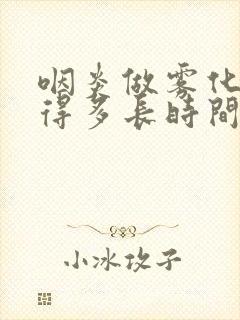 咽炎做雾化
得多長時間
小冰攻子